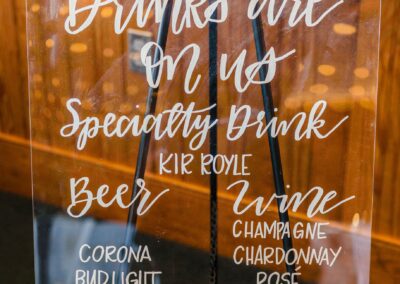 Drinks are
on us
Specialty Drink
KIR ROYLE
Beer Wine
CHAMPAGNE
CORONA CHARDONNAY
BUD LIGHT ROSÉ